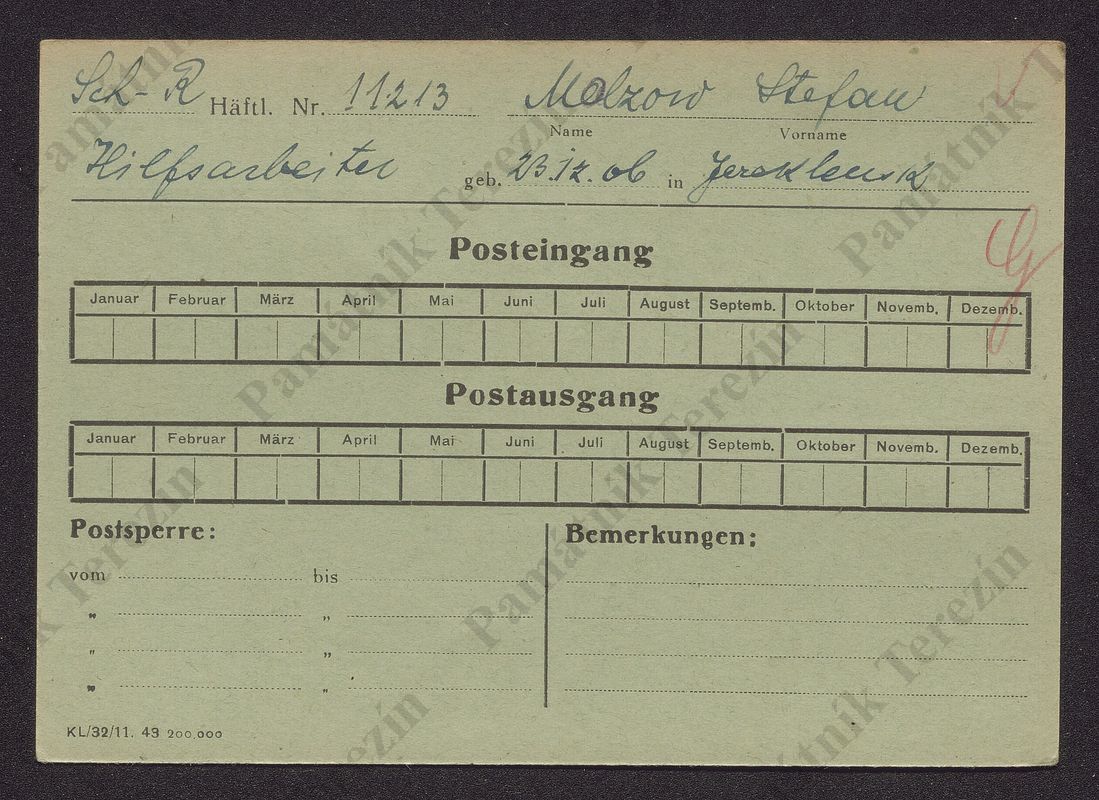 Sch-R Häftl. Nr. 11213 Molzow Stefan
Name Vorname
Hilfsarbeiter geb. 23.12.06 in
Posteingang
Januar Februar März April Mai Juni Juli August Septemb. Oktober Novemb. Dezemb.
Postausgang
Januar Februar März April Mai Juni Juli August Septemb. Oktober Novemb. Dezemb.
Postsperre: Bemerkungen:
vom bis
" "
" "
" "
KL/32/11. 43 200,000
Památník Terezín